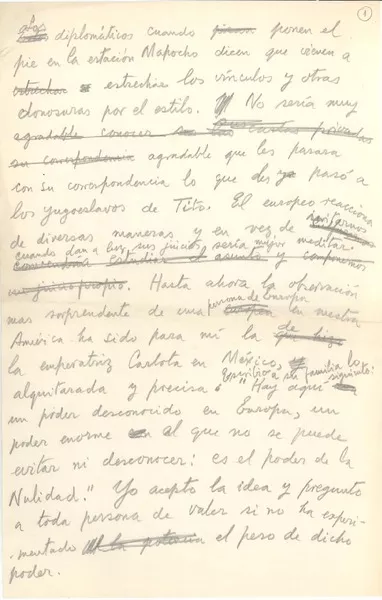 1
altos diplomáticos cuando ponen el
pie en la estación Mapocho dicen que vienen a
estrechar los vínculos y otras
donosuras por el estilo. No sería muy
agradable conocer
su correspondencia agradable que les pasara
con su correspondencia lo que les pasó a
los yugoeslavos de Tito. El europeo reacciona
de diversas maneras y en vez de
cuando dan a luz sus juicios, sería mejor meditar.
conveniera estudiar el asunto y componernos
un juicio propio. Hasta ahora la observación
mas sorprendente de una persona de Europa en nuestra
América ha sido para mí la de
la emperatriz Carlota en México, lo
escribió a su familia
alquitarada y precisa: "Hay aquí
un poder desconocido en Europa, un
poder enorme al que no se puede
evitar ni desconocer: es el poder de la
Nulidad." Yo acepto la idea y pregunto
a toda persona de valer si no ha experi-
mentado el peso de dicho
poder.